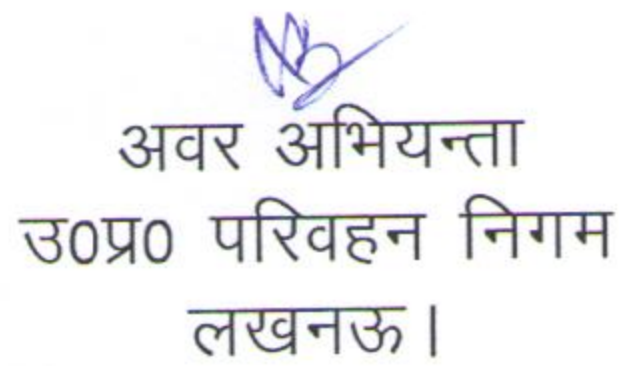 अवर अभियन्ता
उ0प्र0 परिवहन निगम
लखनऊ।